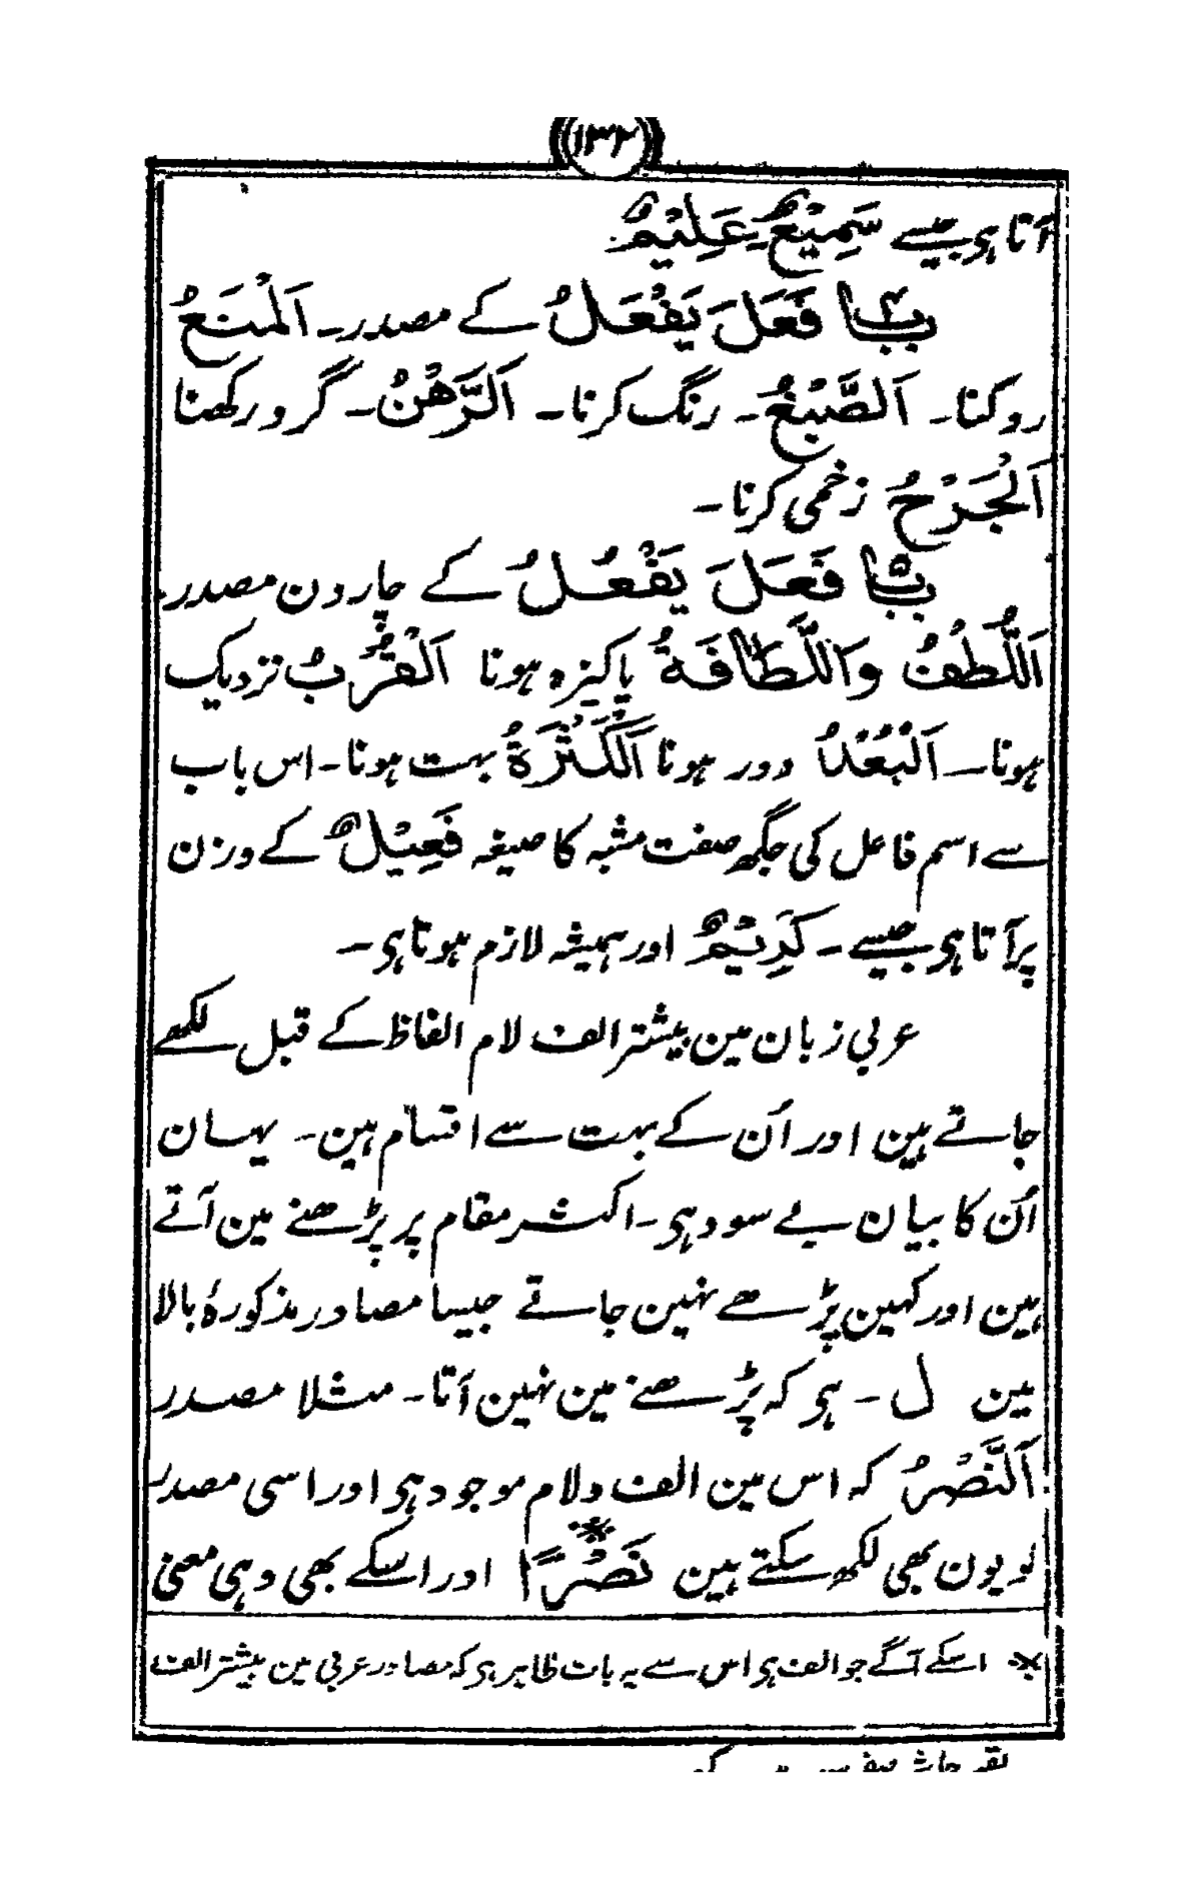 ۱۳۲
آتا ہی جیسے سَمِیْعٌ۔ عَلِیْمٌ۔
باب۴ فَعَلَ یَفْعَلُ کے مصدر۔ اَلْمَنَعُ
روکنا۔ اَلصَّبْغُ۔ رنگ کرنا۔ اَلرَّهْنُ۔ گرو رکھنا
اَلْجَرْحُ زخمی کرنا۔
باب۵ فَعَلَ یَفْعُلُ کے چارون مصدر
اَللُّطْفُ وَاللَّطَافَةُ پاکیزہ ہونا اَلْقُرْبُ نزدیک
ہونا۔ اَلْبُعْدُ دور ہونا اَلْکَثْرَةُ بہت ہونا۔ اس باب
سے اسم فاعل کی جگہ صفت مشبہ کا صیغہ فَعِیْلٌ کے وزن
پر آتا ہی جیسے۔ کَرِیْمٌ اور ہمیشہ لازم ہوتا ہی۔
عربی زبان مین بیشتر الف لام الفاظ کے قبل لکھے
جاتے ہین اور اُن کے بہت سے اقسام ہین۔ یہان
اُن کا بیان بے سود ہی۔ اکثر مقام پر پڑھنے مین آتے
ہین اور کہین پڑھے نہین جاتے جیسا مصادر مذکورۂ بالا
مین ل۔ ہی کہ پڑھنے مین نہین آتا۔ مثلا مصدر
اَلنَّصْرُ کہ اس مین الف ولام موجود ہی اور اسی مصدر
کو یون بھی لکھ سکتے ہین نَصْرًا※ اور اسکے بھی وہی معنی
※ اسکے آگے جو الف ہی اس سے یہ بات ظاہر ہی کہ مصادر عربی مین بیشتر الف